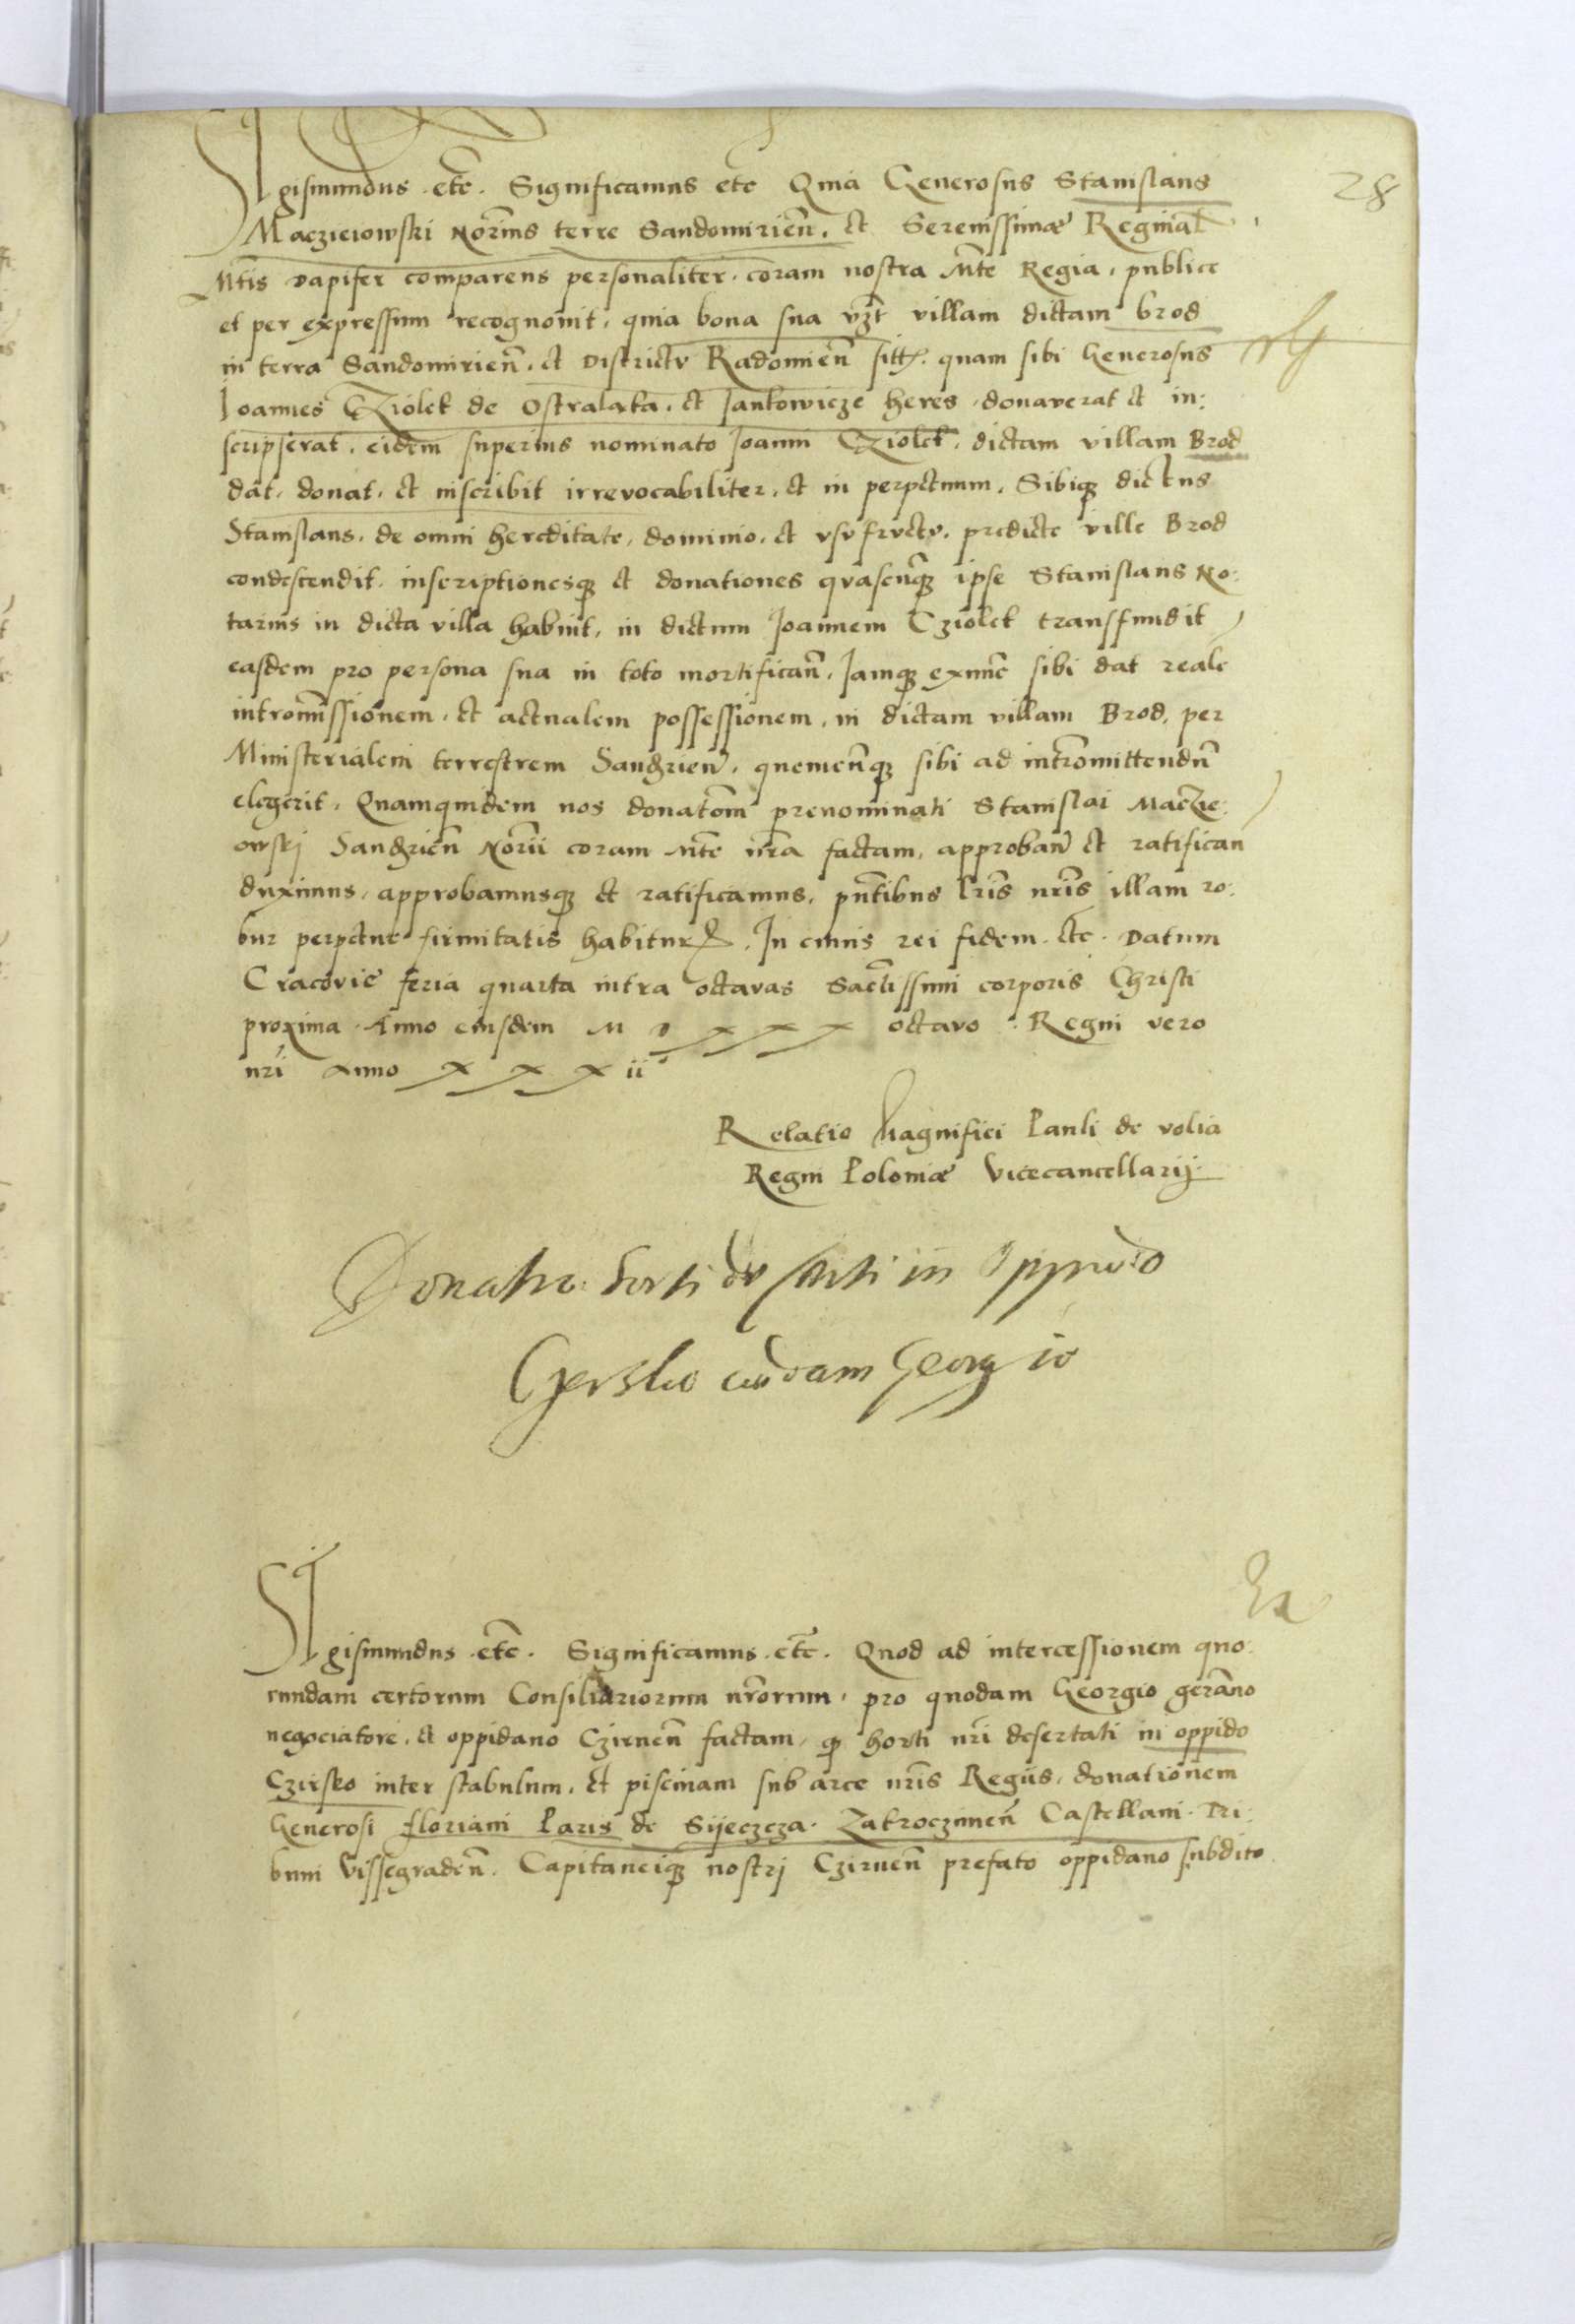 28
Sigismundus etc̃. Significamus etc̃ Quia Generosus Stanislaus
Macziejowski Nor̃ius terre Sandomirieñ. et Serenissimæ Reginal̃
Mt̃is dapifer comparens personaliter. coram nostra Mt̃e Regia, publice
et per expressum recognovit, quia bona sua vz̃t villam dictam brod
in terra Sandomirieñ. et Districtv Radomieñ sitt. quam sibi Generosus
Joannes CZiolek de Ostralaka. et Jankowicze heres, donaverat et in:
scripserat. eidem superius nominato Joanni CZiolek. dictam villam Brod
dat, donat, et inscribit irrevocabiliter, et in perpetuum, Sibiqз dictus
Stanislaus, de omni hereditate, dominio, et vsvfrvctv, predicte ville Brod
condescendit, inscriptionesqз et donationes qvascũqз ipse Stanislaus No:
tarius in dicta villa habuit, in dictum Joannem Cziolek transffundit
easdem pro persona sua in toto mortificañ. Jamqз exnũc sibi dat reale
intromissionem, et actualem possessionem, in dictam villam Brod, per
Ministerialem terrestrem Sandzrieñ, quemcunqз sibi ad intromittendũ
elegerit, Quamquidem nos donatom̃ prenominati Stanislai Maczie:
owskj Sandzrieñ Nor̃ii coram Mt̃e nr̃a factam, approbañ et ratifican
duximus, approbamusqз et ratificamus, pñtibus lr̃is nr̃is illam ro:
bur perpetue firmitatis habitur. In cuius rei fidem etc. Datum
Cracovie feria quarta intra octavas Sacr̃tissimi corporis Christi
proxima Anno eiusdem M D x x x octavo. Regni vero
nr̃i Anno x x x ii°
Relatio Magnifici Pauli de volia
Regni Poloniæ Vicecancellarij
Donatio horti deserti in Oppido
Czersko cuidam Georgio
Sigismundus etc̃. Significamus etc̃. Quod ad intercessionem quo:
rundam certorum Consiliariorum nr̃orum, pro quodam Georgio germ̃ano
negociatore, et oppidano Czirneñ factam, qз horti nr̃i desertati in oppido
Czirsko inter stabulum, et piscinam sub arce nr̃is Regiis, donationem
Generosi floriani Paris de Syeczcza. Zakroczimeñ Castellani. Tri:
buni Vissegradeñ. Capitaneiqз nostrj Czirneñ prefato oppidano subdito